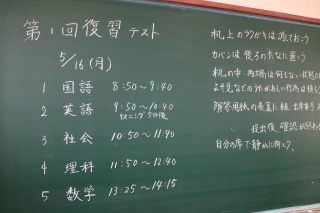 第1回復習テスト
5/16(月)
1 国語 8:50～9:40
2 英語 9:50～10:40
リスニング 5分後
3 社会 10:50～11:40
4 理科 11:50～12:40
5 数学 13:25～14:15
机上のラクガキは消しておこう
カバンは後ろのたなに置く
机の中・両端は何もない状態に
解答用紙の表裏に組、出席番号
提出後、確認が終わ
自分の席で静かに待とう。